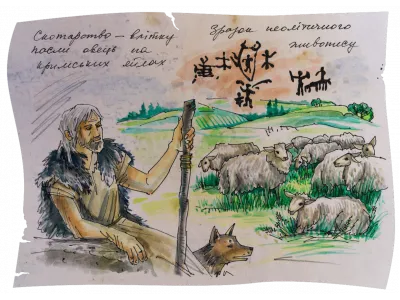 Скотарство – влітку
посли овець на
кримських яйлах
Зразок неолітичного
живопису